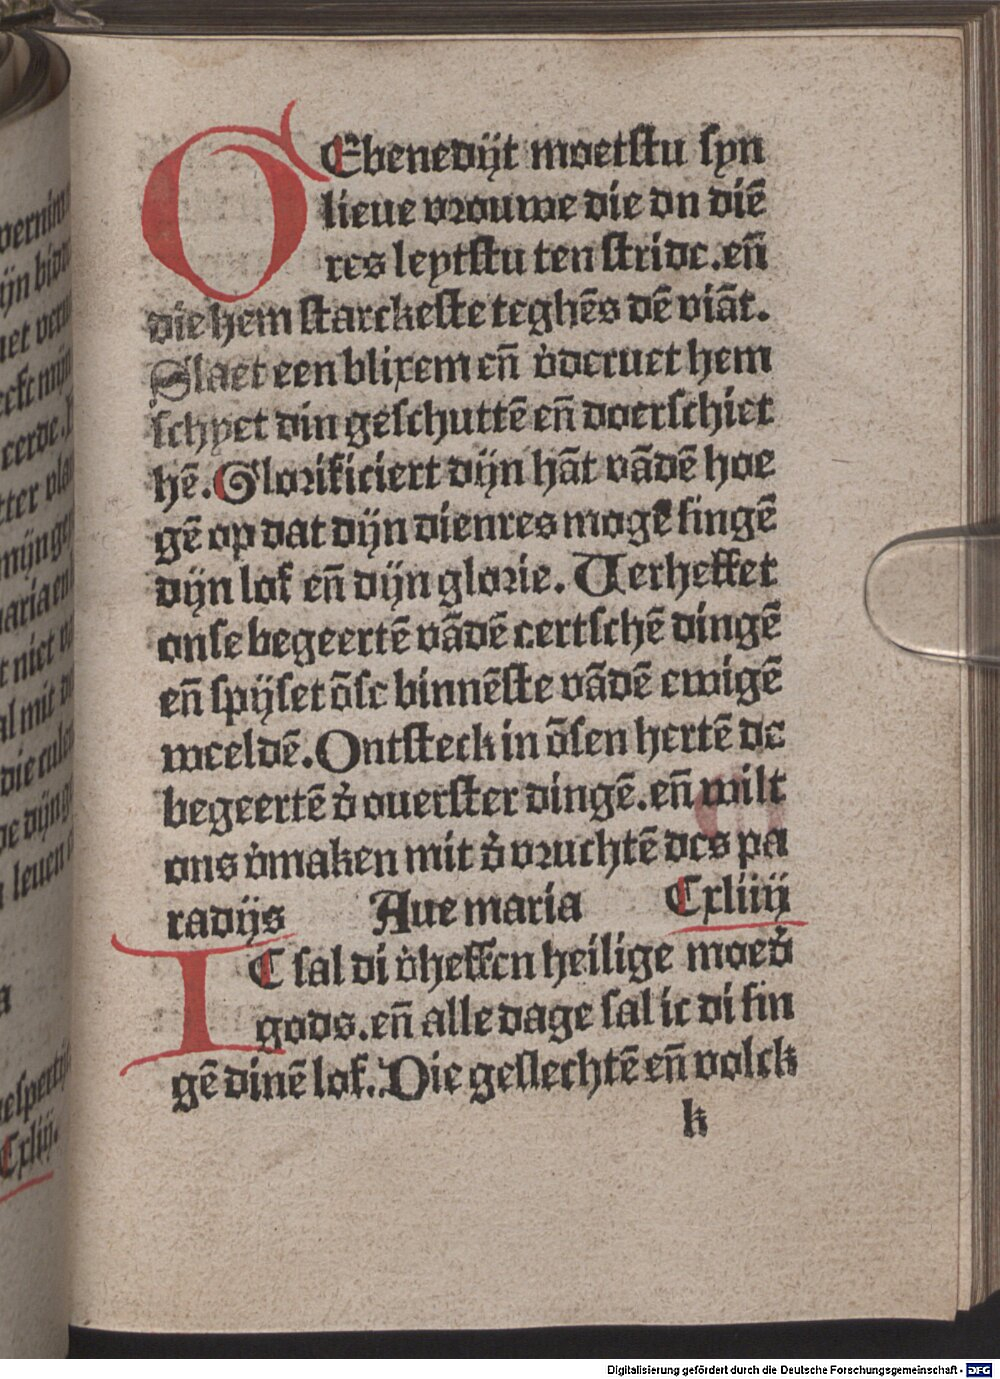 OEbenedijt moetstu syn
lieue vrouwe die dn diē
res leytstu ten stride. eñ
die hem starckeste teghēs dē viāt.
Slaet een blixem eñ v̓dcruet hem
schyet din geschuttē eñ doerschiet
hē. Glorificiert dijn hāt vādē hoe
gē op dat dijn dienres mogē singē
dijn lof eñ dijn glorie. Uerheffet
onse begeertē vādē eertschē dingē
eñ spijset ōse binnēste vādē ewigē
weeldē. Ontsteck in ōsen hertē de
begeertē d̓ ouerster dingē. eñ wilt
ons v̓maken mit d̓ vruchtē des pa
radijs Aue maria Cxliiij
IC sal di v̓heffen heilige moed̓
gods. eñ alle dage sal ic di sin
gē dinē lof. Die geslechtē eñ volck
k
Cxliij.
Digitalisierung gefördert durch die Deutsche Forschungsgemeinschaft - DFG